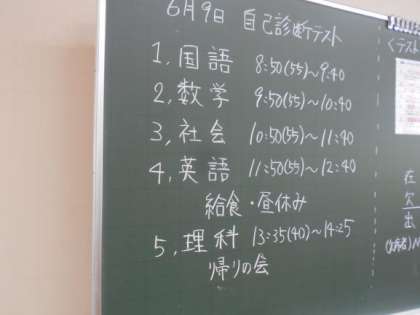 6月9日 自己診断テスト
1. 国語 8:50(55)~9:40
2. 数学 9:50(55)~10:40
3. 社会 10:50(55)~11:40
4. 英語 11:50(55)~12:40
給食・昼休み
5. 理科 13:35(40)~14:25
帰りの会
<テスト
在
欠
出